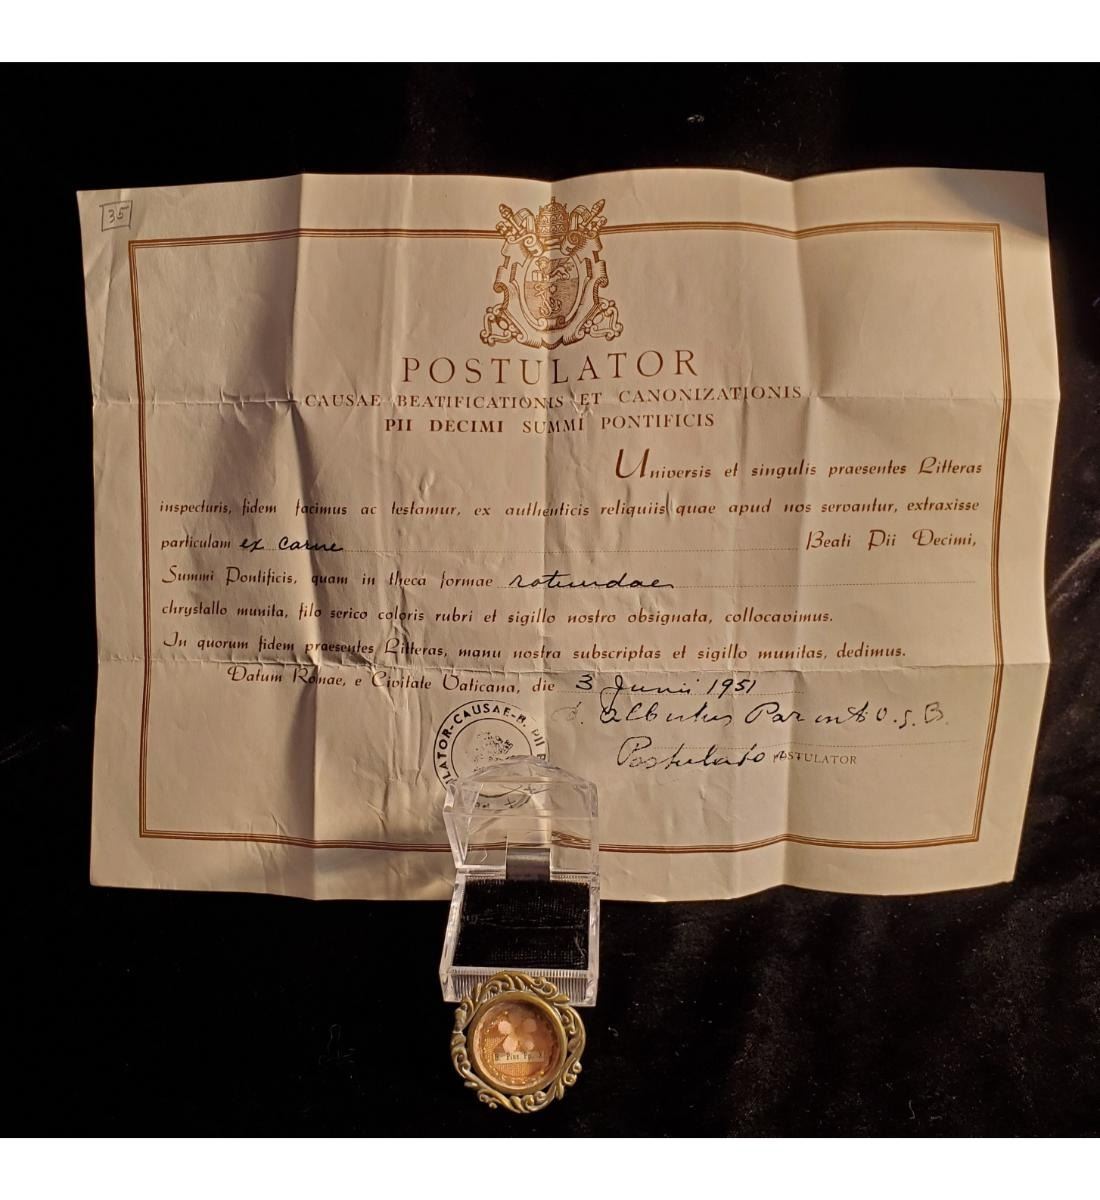 35
POSTULATOR
CAUSAE BEATIFICATIONIS ET CANONIZATIONIS
PII DECIMI SUMMI PONTIFICIS
Universis et singulis praesentes Litteras
inspecturis, fidem facimus ac testamur, ex authenticis reliquiis quae apud nos servantur, extraxisse
particulam ex carne Beati Pii Decimi,
Summi Pontificis, quam in theca formae rotundae
chrystallo munita, filo serico coloris rubri et sigillo nostro obsignata, collocavimus.
In quorum fidem praesentes Litteras, manu nostra subscriptas et sigillo munitas, dedimus.
Datum Romae, e Civitate Vaticana, die 3 Junii 1951
Albertus Parenti O.S.B.
Postulator
POSTULATOR
LATOR-CAUSAE-B. PII P
B. Pius Pp. X